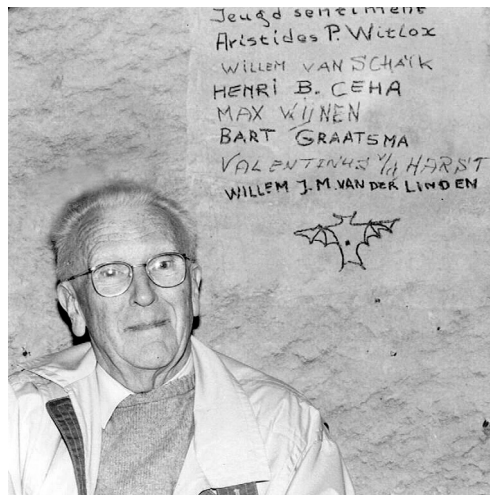 Jeugd sentiment
Aristides P. Witlox
WILLEM VAN SCHAÏK
HENRI B. CEHA
MAX WIJNEN
BART GRAATSMA
VALENTINUS v/d HARST
WILLEM J.M. VAN DER LINDEN